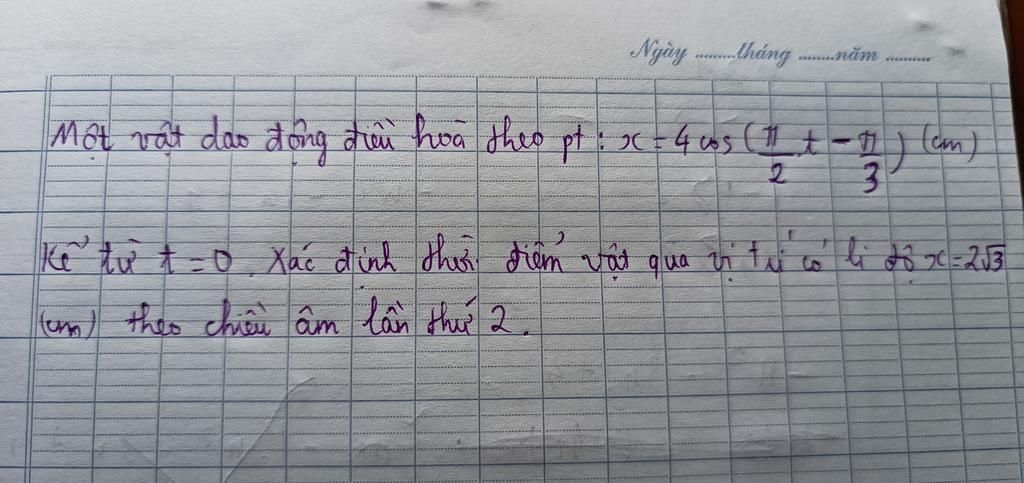 Ngày ......... tháng ......... năm ...........
Một vật dao động điều hoà theo pt : x = 4 cos ( π/2 t - π/3 ) (cm)
Kể từ t = 0. Xác định thời điểm vật qua vị trí có li độ x = 2√3
(cm) theo chiều âm lần thứ 2.